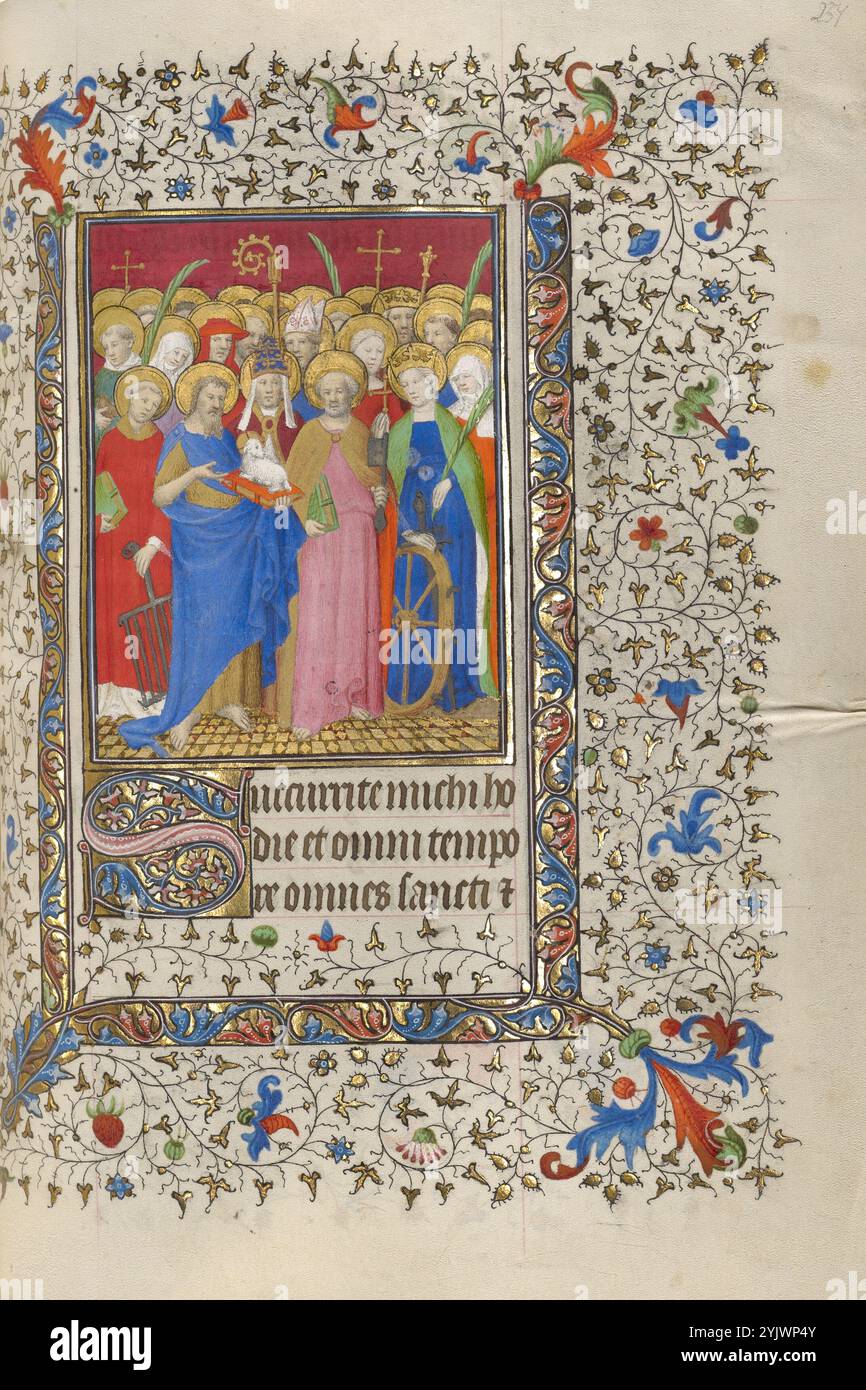 254
Succurrite michi ho
die et omni tempo
re omnes sancti ⁊
alamy
Image ID: 2YJWP4Y
www.alamy.com